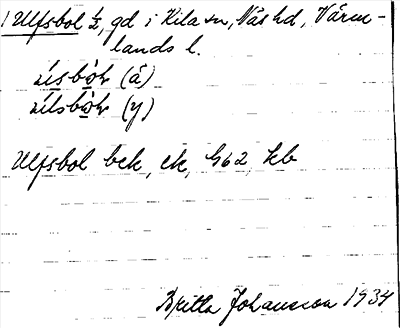 1 Ulfsbol ½, gd i Kila sn, Näs hd, Värm-
lands l.
(ä)
(y)
Ulfsbol bek, ek, 462 kb
Britta Johansson 1934